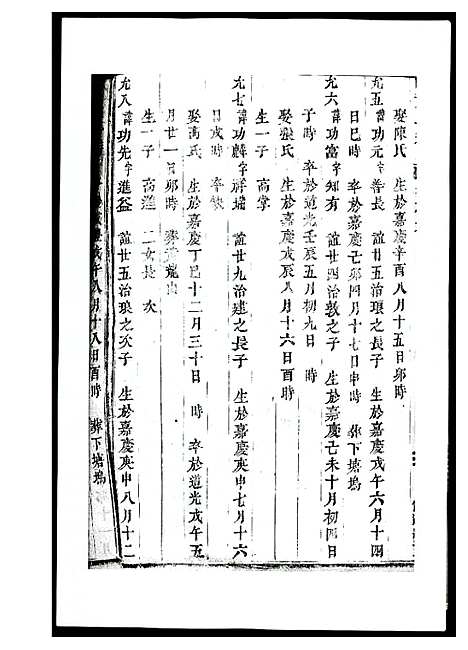 娶陳氏 生於嘉慶辛酉八月十五日卯時
允五諱功元字善長 誼廿五治琅之子 生於嘉慶戊午六月十四
日巳時 卒於嘉慶己卯四月十七日申時 葬下塘塢
允六諱功富字知有 誼世四治敦之子 生於嘉慶己未十月初四日
子時 卒於道光壬辰五月初九日 時
娶張氏 生於嘉慶戊辰八月十六日酉時
生一子 高掌
允七諱功麟字祥瑞 誼世九治建之長子 生於嘉慶庚申七月十六
日戌時 卒缺
娶馮氏 生於嘉慶丁巳十二月三十日 時 卒於道光戊午五
月廿一日卯時
生一子 高進 二女長 次
允八諱功先字進益 誼世五治琅之次子 生於嘉慶庚申八月十二
戊午八月十八日酉時 葬下塘塢